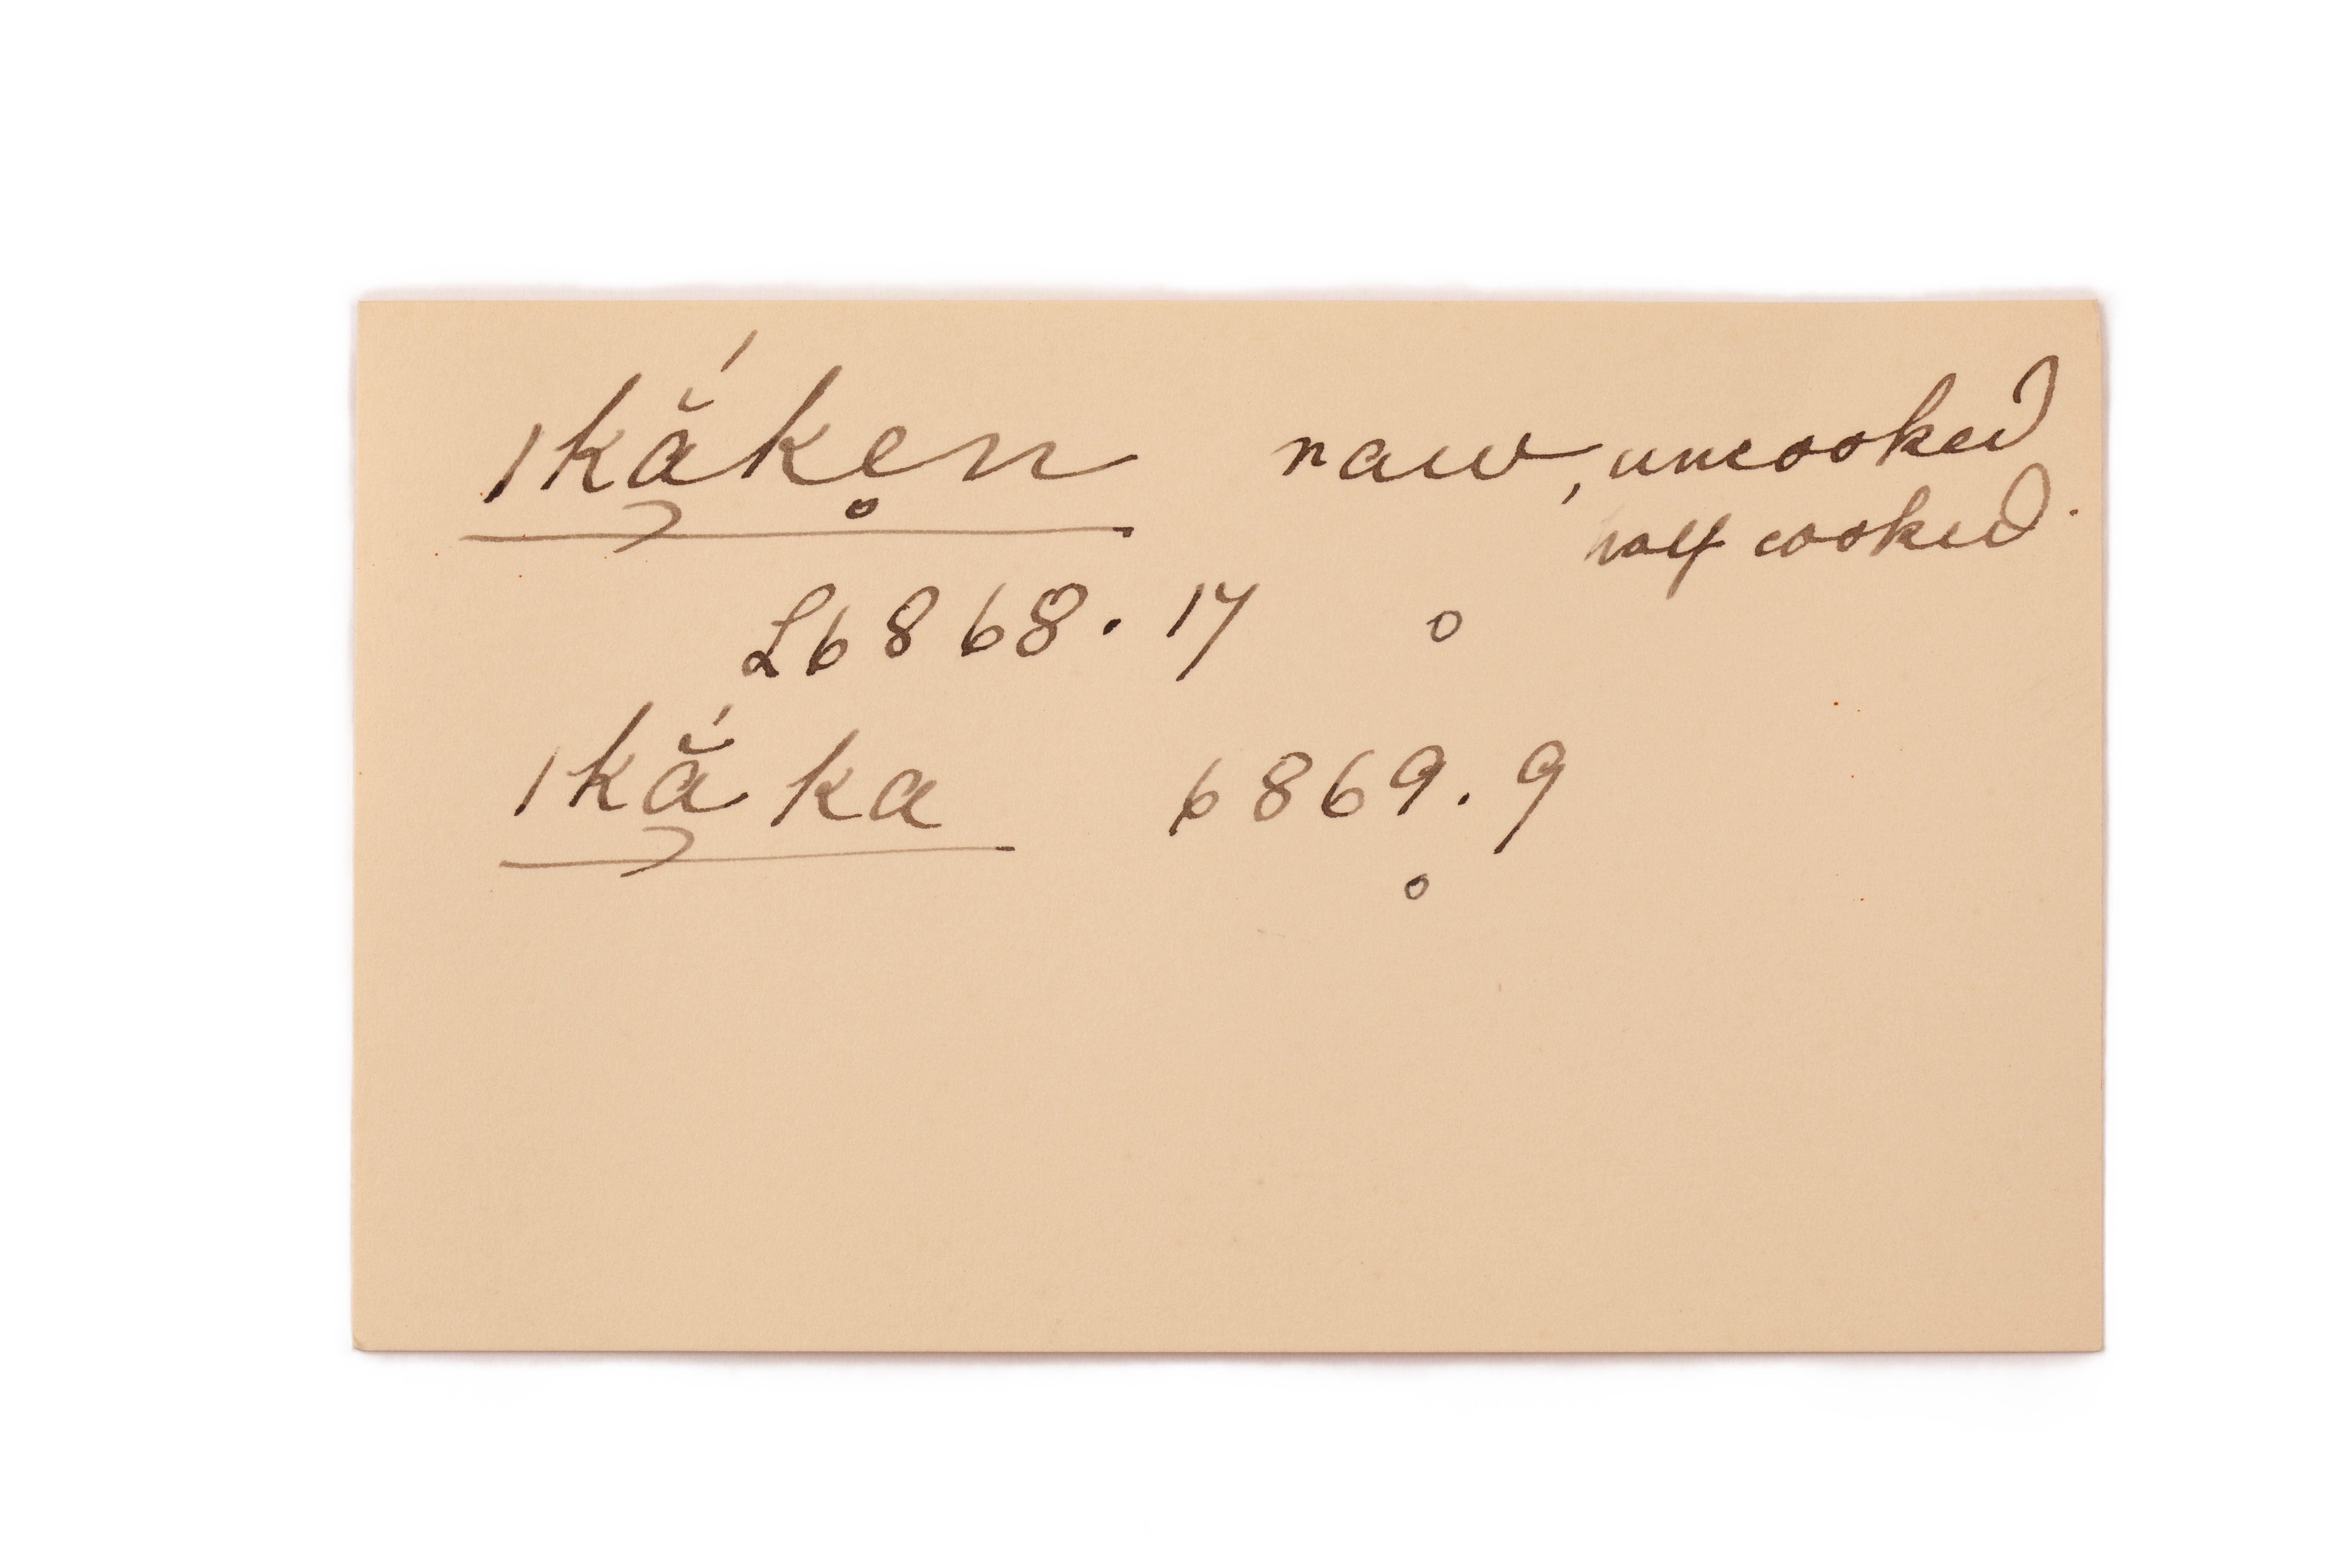 ıkắ̦ke̥n raw, uncooked
half cooked.
L6868.17 o
ıkắ̦ka 6869.9
o